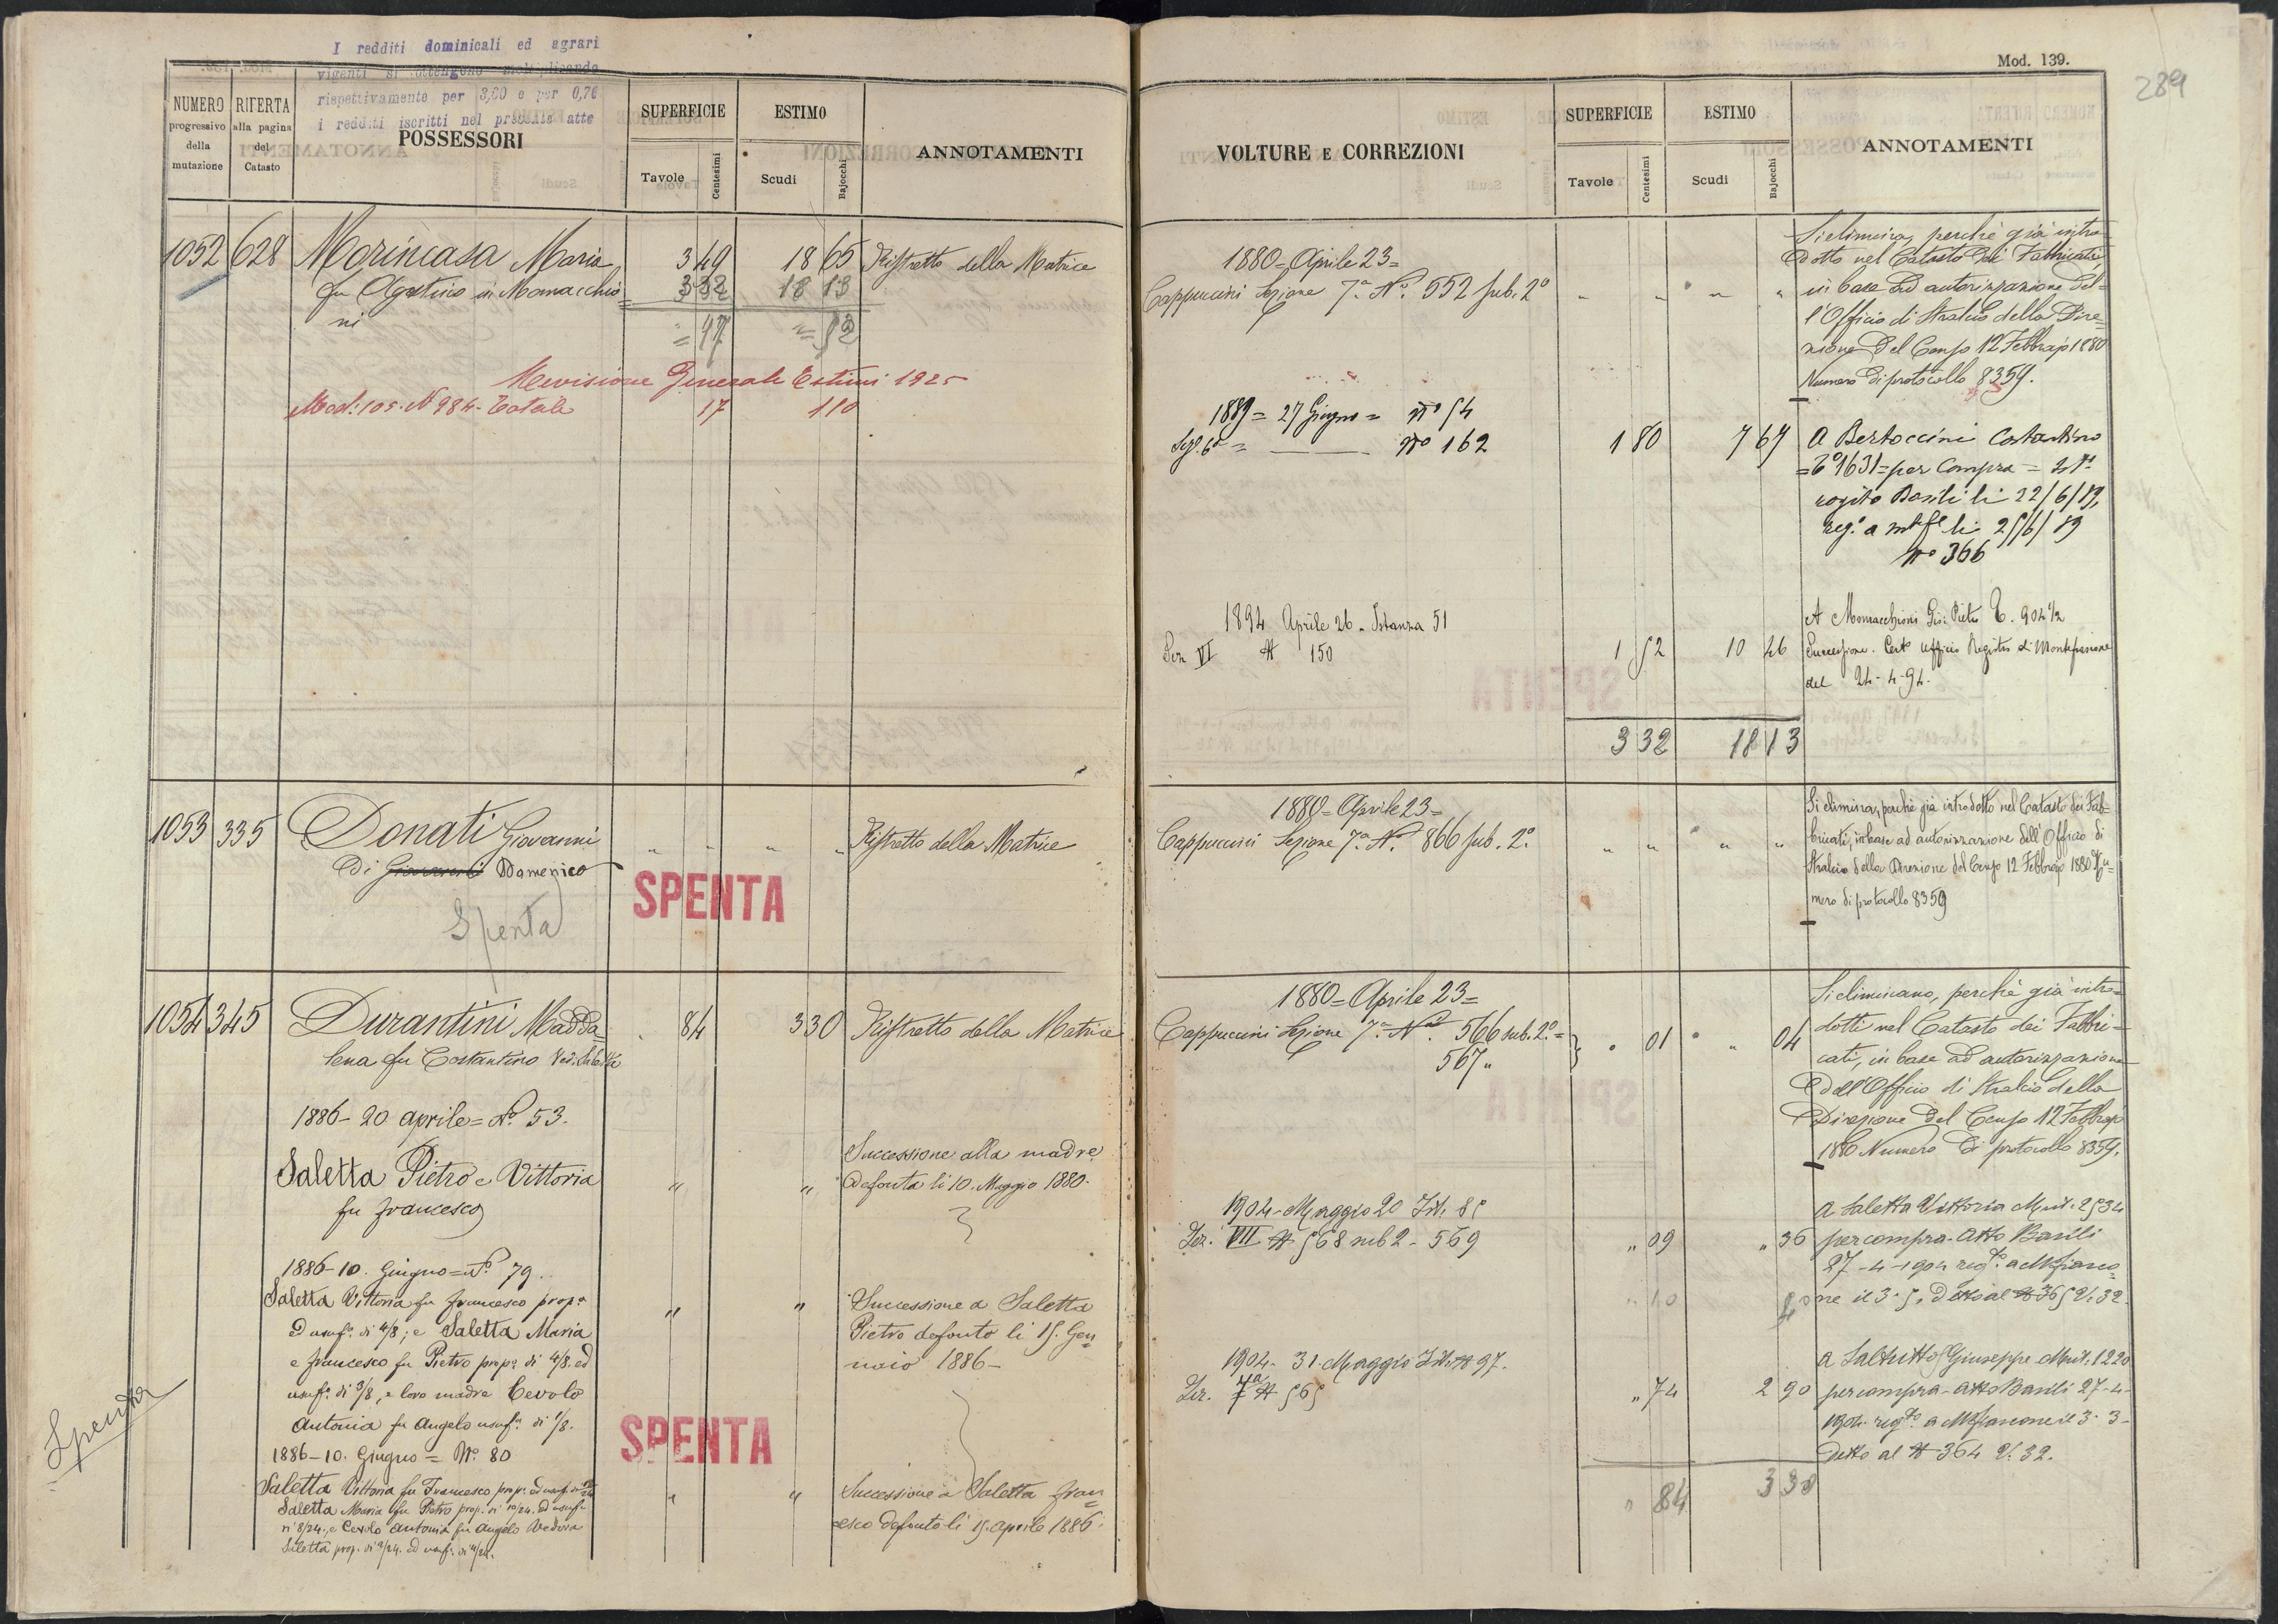 I redditi dominicali ed agrari
vigenti si ottengono moltiplicando
rispettivamente per 3,00 e per 0,76
i redditi iscritti nel presente atto
NUMERO progressivo della mutazione
RIFERTA alla pagina del Catasto
POSSESSORI
SUPERFICIE
Tavole
Centesimi
ESTIMO
Scudi
Bajocchi
ANNOTAMENTI
1052 628 Morincasa Maria 3 49 18 65 Ristretto della Matrice
fu Agostino in Monacchio= 3 32 18 13
ni " 17 " 52
Revisione Generale Estimi 1925
Mod: 105. N 984. Totale 17 110
1053 335 Donati Giovanni " " " " Ristretto della Matrice
Di Giovanni Domenico
SPENTA
Spenta
1054 345 Durantini Madda= . 84 3 30 Ristretto della Matrice
lena fu Costantino Ved. Saletta
1886 - 20 aprile = N.° 53.
Saletta Pietro e Vittoria " " Successione alla madre
fu Francesco defonta li 10. Maggio 1880.
1886 - 10. Giugno = N.° 79.
Saletta Vittoria fu Francesco prop.a " " Successione a Saletta
ed usuf.a di 4/8; e Saletta Maria Pietro defonto li 15. Gen=
e Francesco fu Pietro prop.i di 4/8. ed naio 1886 -
usuf.i di 3/8, e loro madre Cevolo
Antonia fu Angelo usuf.a di 1/8.
Spenta
SPENTA
1886 - 10. Giugno = N.° 80
Saletta Vittoria fu Francesco prop.a ed usuf.a " " Successione a Saletta Fran=
Saletta Maria fu Pietro prop. di 10/24. ed usuf.a cesco defonto li 15. aprile 1886.
di 8/24., e Cevolo Antonia fu Angelo Vedova
Saletta prop. di 2/24. ed usuf.a di 4/24.
Mod. 139.
289
VOLTURE E CORREZIONI
SUPERFICIE
Tavole
Centesimi
ESTIMO
Scudi
Bajocchi
ANNOTAMENTI
1880 = Aprile 23 =
Cappuccini Sezione 7.a N.° 552 sub. 2.° " " " "
Si elimina, perchè già intro=
dotto nel Catasto dei Fabbricati
in base ad autorizzazione del=
l'Officio di Stralcio della Dire=
zione del Censo 12 Febbrajo 1880
Numero di protocollo 8359.
1889 = 27 Giugno = N° 54
Sez. 6a = N° 162 1 80 7 67
A Bertoccini Costantino
= 1631 = per Compra =
rogito Basili li 22/6/89,
reg.o a li 25/6/89
N° 366
1894 Aprile 26 - Istanza 51
Sez VI N 150 1 52 10 46
A Monacchioni Gio: Pietro T. 904 1/2
Successione. Cert. Ufficio Registro di Montefiascone
del 24-4-94.
3 32 18 13
1880 = Aprile 23 =
Cappuccini Sezione 7.a N.° 866 sub. 2.° " " " "
Si elimina, perchè già introdotto nel Catasto dei Fab=
bricati, in base ad autorizzazione dell'Officio di
Stralcio della Direzione del Censo 12 Febbrajo 1880 Nu=
mero di protocollo 8359
1880 = Aprile 23 =
Cappuccini Sezione 7.a N.i 566 sub. 2.° = " 01 " 04
567 "
Si eliminano, perchè già intro=
dotti nel Catasto dei Fabbri=
cati, in base ad autorizzazione
dell'Officio di Stralcio della
Direzione del Censo 12 Febbrajo
1880 Numero di protocollo 8359.
1904 - Maggio 20 Ist. 85
Sez. VII N 568 sub 2 - 569 " 09 " 36
a Saletta Vittoria Mut. 2534
per compra - Atto Basili
27-4-1904 reg.to a Mfiasco=
ne il 3-5. detto al N 365 V. 32.
" 10 40
1904 - 31 Maggio Ist. N 97.
Sez. 7a N 565 " 74 2 90
a Giuseppe Mut. 1220
per compra - atto Basili 27-4-
1904. reg.to a Mfiascone il 3-5-
detto al N 364 V. 32.
" 84 3 30